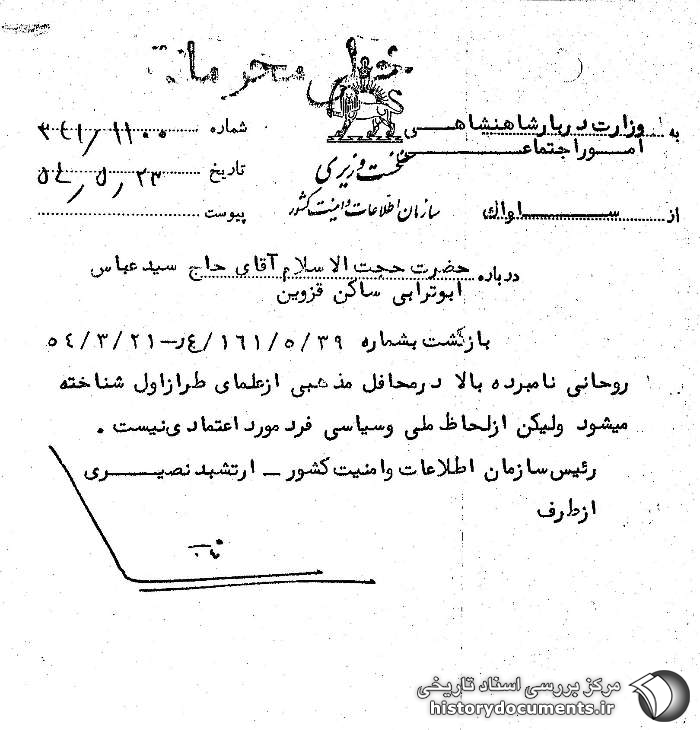 خیلی محرمانه
به وزارت دربار شاهنشاهی
امور اجتماعی
نخست وزیری
سازمان اطلاعات و امنیت کشور
از ساواک
شماره ۳۴۱/۱۱۰۰
تاریخ ۵۴/۵/۲۳
پیوست
درباره حضرت حجت الاسلام آقای حاج سید عباس
ابوترابی ساکن قزوین
بازگشت بشماره ۳۹/۵/۱۶۱/ع‌ر-۵۴/۳/۲۱
روحانی نامبرده بالا در محافل مذهبی از علمای طراز اول شناخته
میشود ولیکن از لحاظ ملی و سیاسی فرد مورد اعتمادی نیست.
رئیس سازمان اطلاعات و امنیت کشور - ارتشبد نصیری
از طرف
مرکز بررسی اسناد تاریخی
historydocuments.ir